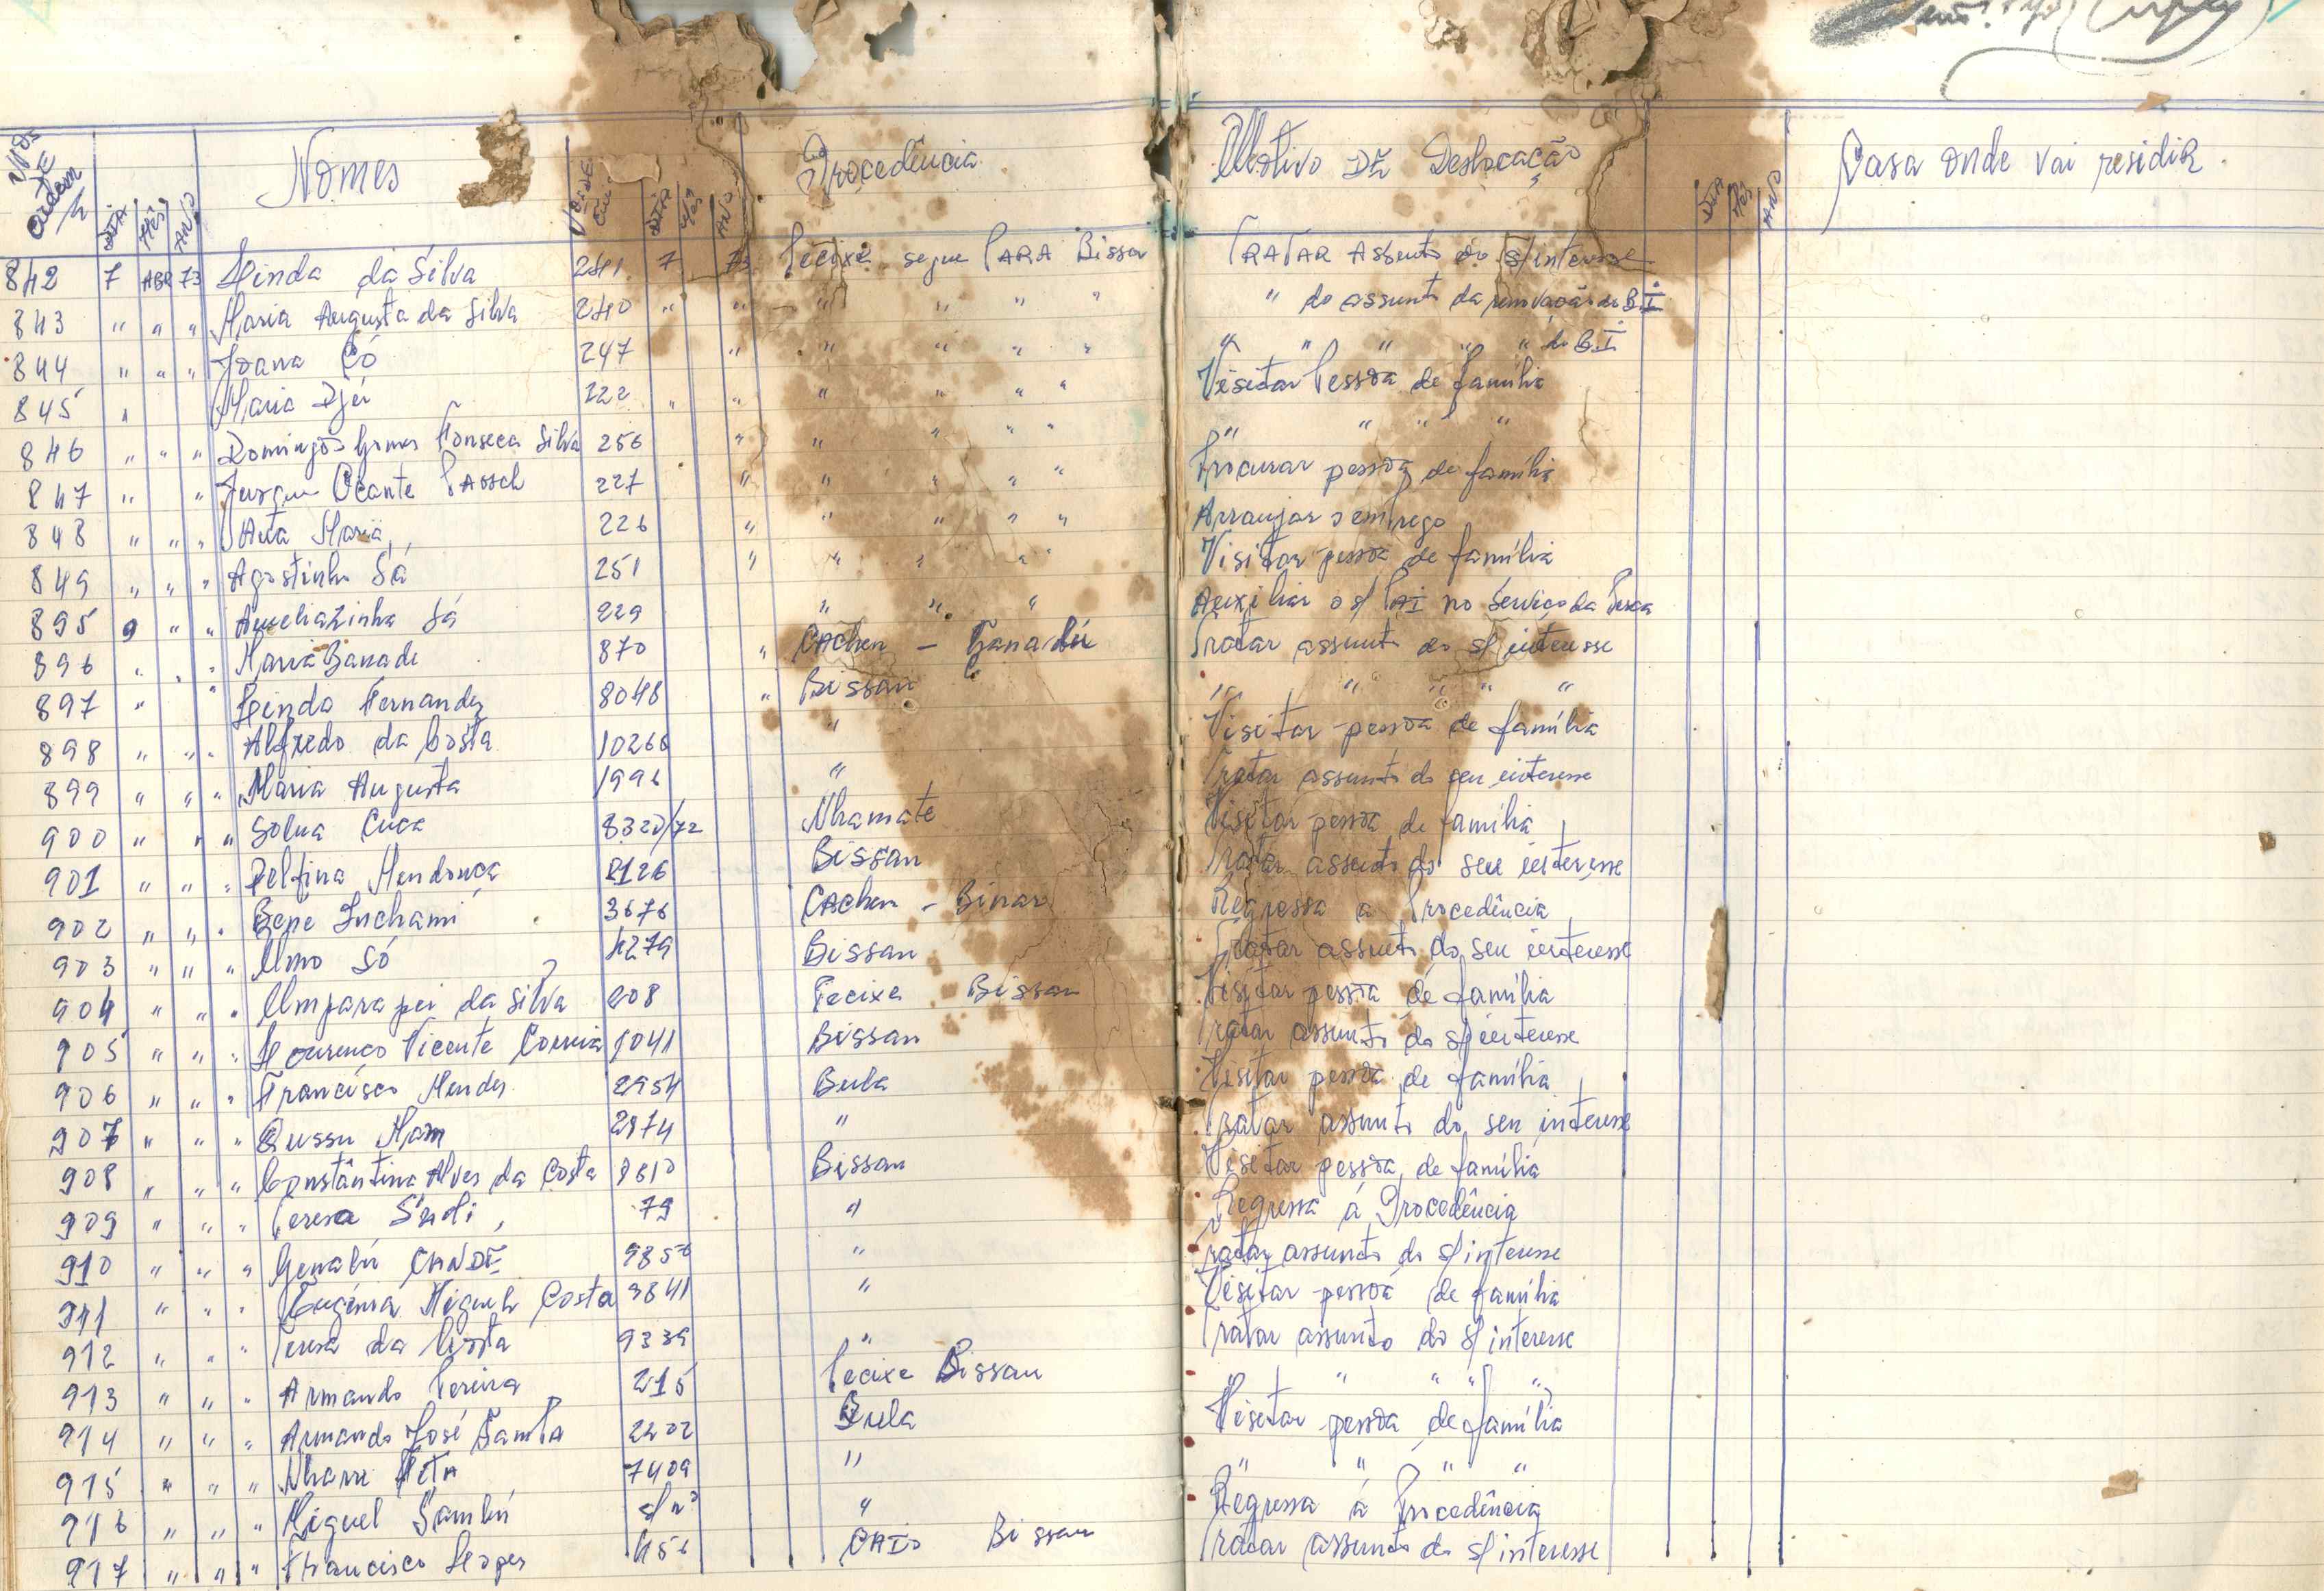 Nºs DE ordem DIA MÊS ANO Nomes DIA MÊS ANO Procedência Motivo DE Deslocação DIA Mês ANO Casa onde vai residiR.
842 7 ABR 73 Linda da Silva 241 7 73 Pecixe segue PARA Bissau TRATAR Assunto do s/ interesse
843 " " " Maria Augusta da Silva 240 " " " " " " " do assunto da renovação do B.I
844 " " " Joana Có 247 " " " " " " " " " " do B.I
845 " Maria Djú 222 " " " " " " Visitar Pessoa de família
846 " " " Domingos Gomes Fonseca Silva 256 " " " " " " " " "
847 " " Ocante 227 " " " " " Procurar pessoa de família
848 " " " Maria 226 " " " " " Arranjar o emprego
849 " " " Agostinho Sá 251 " " " " " Visitar pessoa de família
895 9 " " Sá 229 " " " Auxiliar o s/ PAI no Serviço da Pesca
896 " " " Maria Banade 870 " CAcheu – Tratar assunto do s/ interesse
897 " " Linda Fernandes 8048 " Bissau " " " " "
898 " " " Alfredo da Costa 10266 " Visitar pessoa de família
899 " " " Maria Augusta 1996 " Tratar assunto do seu interesse
900 " " " Cuca 8320/72 Nhamate Visitar pessoa de família
901 " " " Delfina Mendonça 8126 Bissau Tratar assunto do seu interesse
902 " " " Bepe Inchami 3676 CAcheu – Binar Regressa a Procedência
903 " " " Só 4279 Bissau Tratar assunto do seu interesse
904 " " " da Silva 208 Pecixe Bissau Visitar pessoa de família
905 " " " Lourenço Vicente Correia 8041 Bissau Tratar assunto do s/ interesse
906 " " " Francisco Mendes 2954 Bula Visitar pessoa de família
907 " " " Qussu Mam 2874 " Tratar assunto do seu interesse
908 " " " Constântina Alves da Costa 8610 Bissau Visitar pessoa de família
909 " " " Teresa 79 " Regressa á Procedência
910 " " " Genabú CANDÉ 9856 " Tratar assunto do s/ interesse
911 " " " Eugénia Miguel Costa 9841 " Visitar pessoa de família
912 " " " Teresa da Costa 9339 " Tratar assunto do s/ interesse
913 " " " Armando Pereira 215 Pecixe Bissau " " " " "
914 " " " Armando José 2202 Bula Visitar pessoa de família
915 " " " 7409 " " " " "
916 " " " Miguel Sambú s/nº " Regressa á Procedência
917 " " " Francisco Lopes 456 CAIó Bissau Tratar assunto do s/ interesse